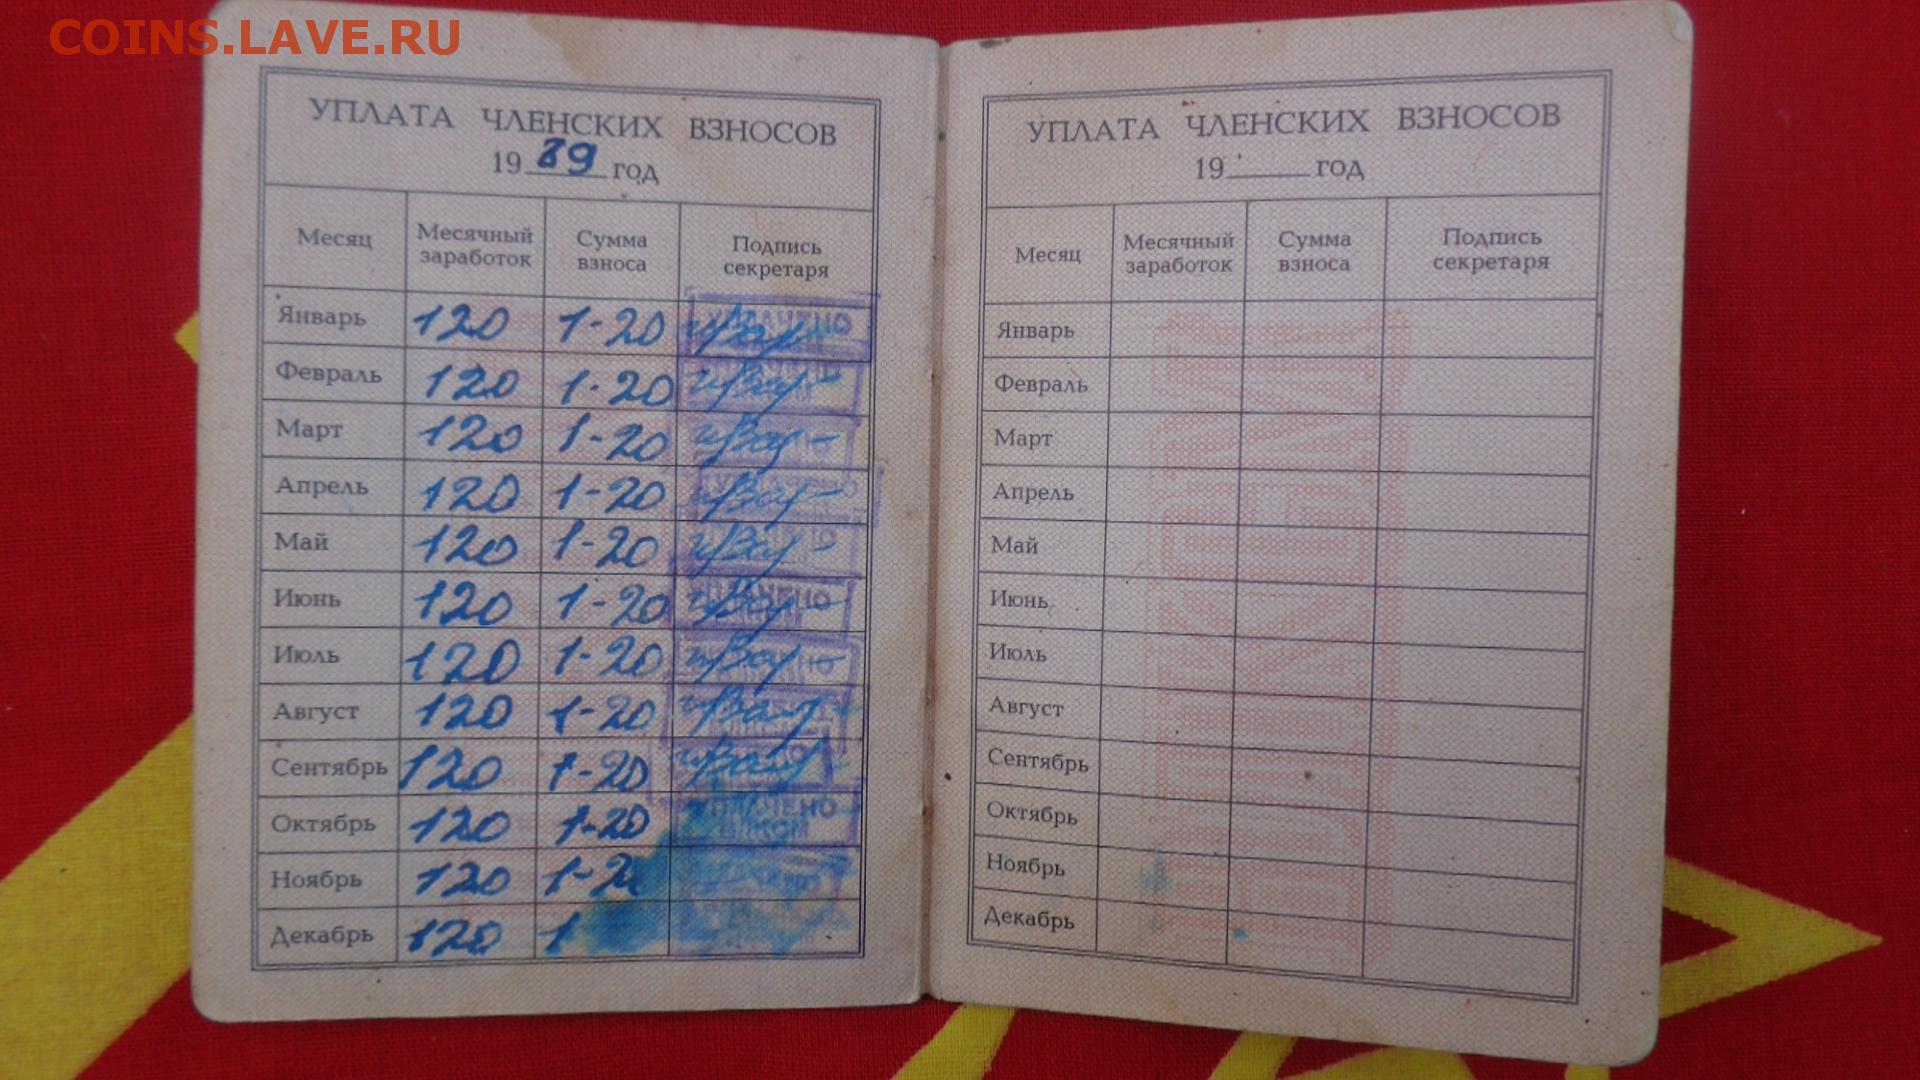 COINS.LAVE.RU
УПЛАТА ЧЛЕНСКИХ ВЗНОСОВ
1989 год
Месяц Месячный заработок Сумма взноса Подпись секретаря
Январь 120 1-20 УПЛАЧЕНО
Февраль 120 1-20
Март 120 1-20
Апрель 120 1-20
Май 120 1-20
Июнь 120 1-20
Июль 120 1-20
Август 120 1-20
Сентябрь 120 1-20
Октябрь 120 1-20
Ноябрь 120 1-2
Декабрь 120 1
УПЛАТА ЧЛЕНСКИХ ВЗНОСОВ
19 год
Месяц Месячный заработок Сумма взноса Подпись секретаря
Январь
Февраль
Март
Апрель
Май
Июнь
Июль
Август
Сентябрь
Октябрь
Ноябрь
Декабрь